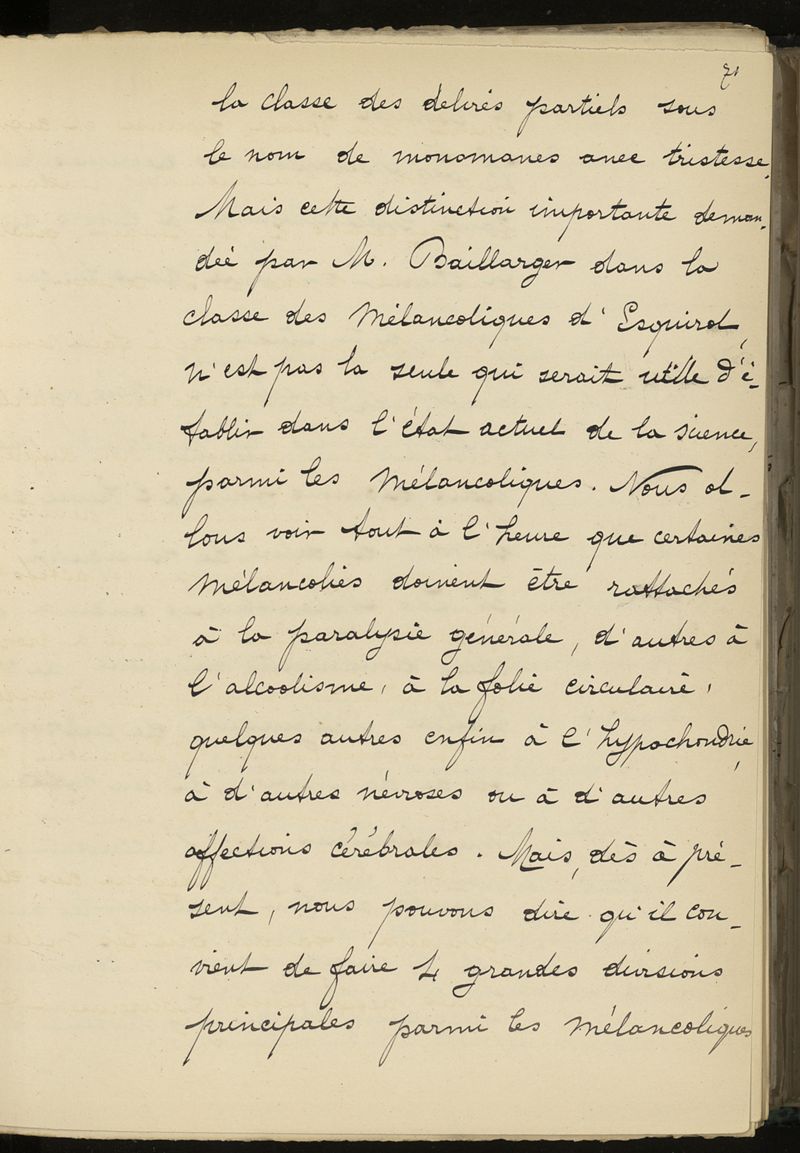 71
la classe des délirés partiels sous
le nom de monomanes avec tristesse.
Mais cette distinction importante deman-
dée par M. Baillarger dans la
classe des Mélancoliques d'Esquirol,
n'est pas la seule qui serait utile d'é-
tablir dans l'état actuel de la science,
parmi les Mélancoliques. Nous al-
lons voir tout à l'heure que certaines
Mélancolies doivent être rattachés
à la paralysie générale, d'autres à
l'alcoolisme, à la folie circulaire,
quelques autres enfin à l'hypochondrie,
à d'autres névroses ou à d'autres
affections cérébrales. Mais, dès à pré-
sent, nous pouvons dire qu'il con-
vient de faire 4 grandes divisions
principales parmi les Mélancoliques